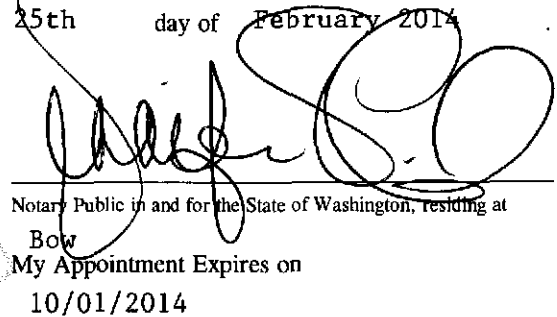 25th day of February 2014
Notary Public in and for the State of Washington, residing at
Bow
My Appointment Expires on
10/01/2014